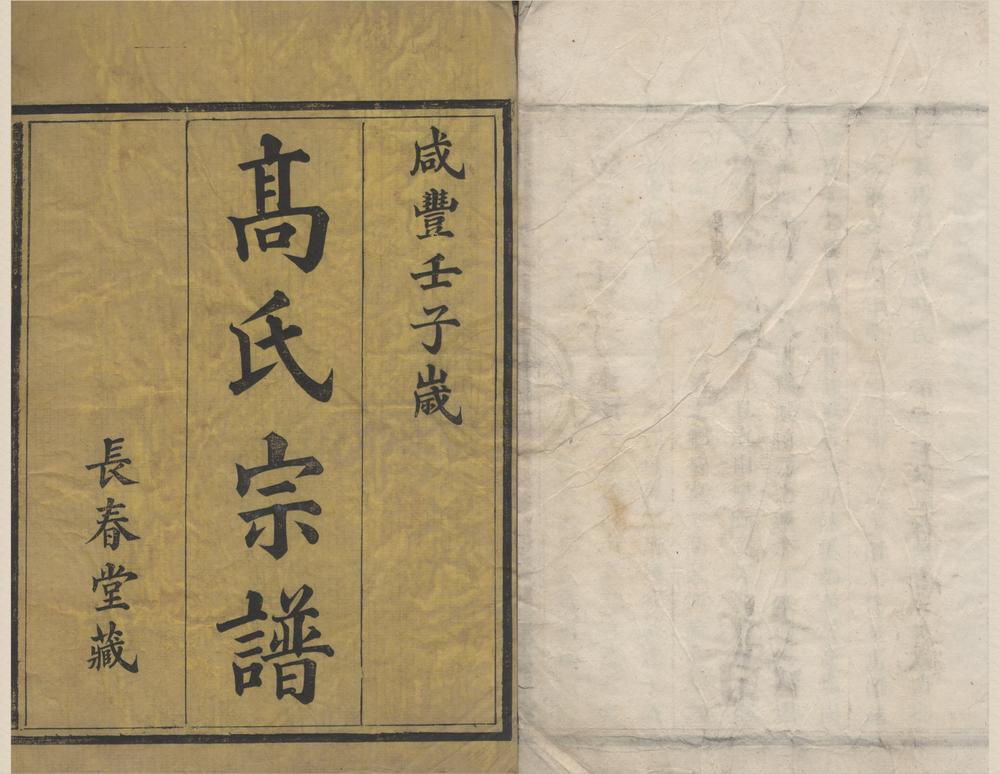 咸豐壬子歲
髙氏宗譜
長春堂藏